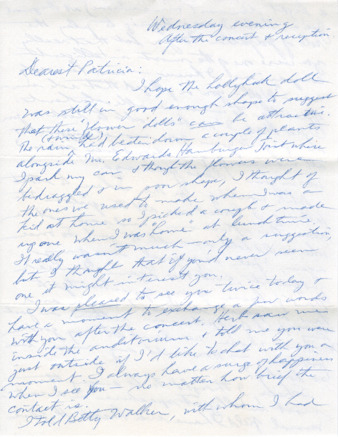 Wednesday evening
After the concert & reception
Dearest Patricia:
I hope the hollyhock doll
was still in good enough shape to suggest
that these "flower dolls" can be attractive.
The rain had beaten down a couple of plants
alongside Mr. Edwards Hamburger Joint where
I park my car & though the flowers were
bedraggled & in poor shape, I thought of
the ones we used to make when I was a
kid at home so I picked a couple & made
one when I was home at lunch time.
It really wasn't much - only a suggestion,
but I thought that if you'd never seen
one it might interest you.
I was pleased to see you twice today &
have a moment to exchange a few words
with you after the concert. saw me
inside the auditorium & told me you were
just outside if I'd like to chat with you a
moment. I always have a surge of happiness
when I see you - no matter how brief the
contact is.
I told Betty Walker, with whom I had